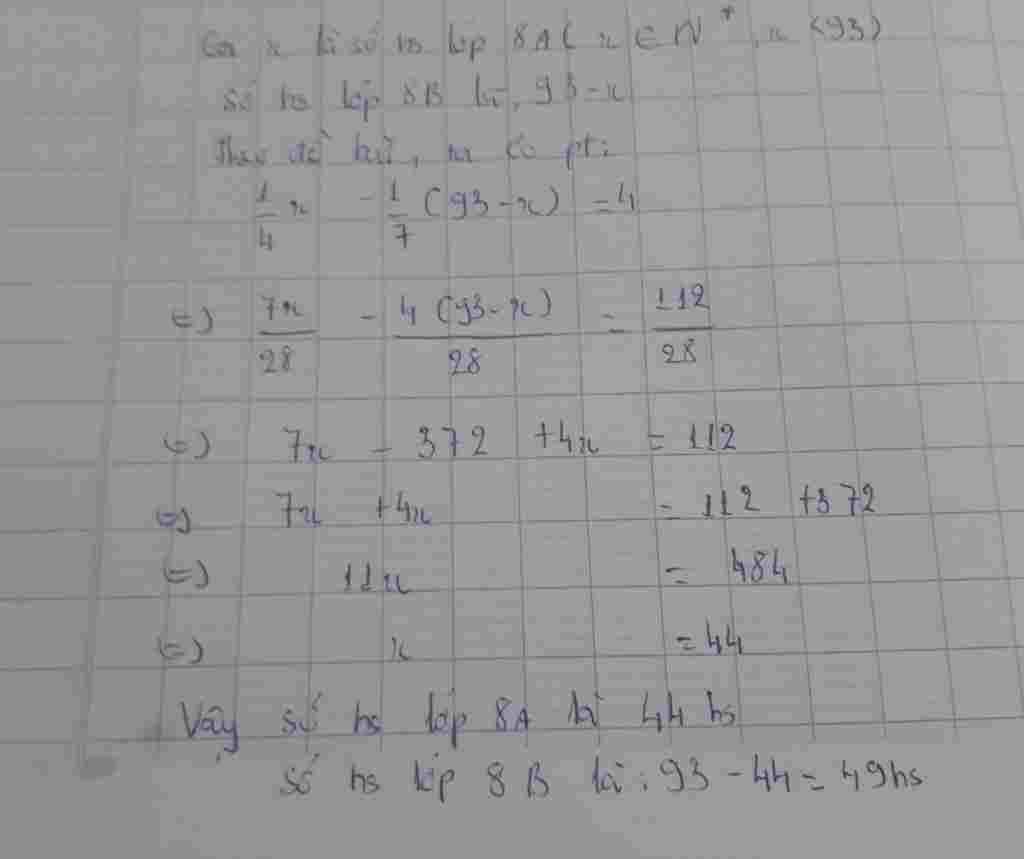 Gọi x là số hs lớp 8A ( x ∈ N*, x < 93)
Số hs lớp 8B là, 93-x
Theo đề bài, ta có pt:
1/4 x - 1/7 (93-x) = 4
<=> 7x/28 - 4(93-x)/28 = 112/28
<=> 7x - 372 + 4x = 112
<=> 7x + 4x = 112 + 372
<=> 11x = 484
<=> x = 44
Vậy số hs lớp 8A là 44 hs
số hs lớp 8B là : 93 - 44 = 49hs